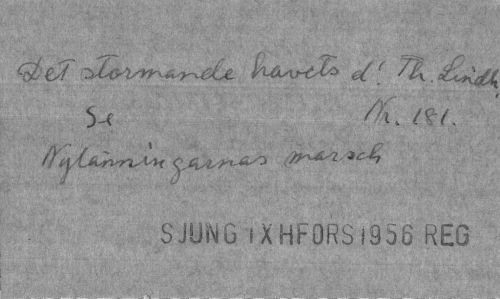 Det stormande havets d! Th. Lindh.
Se Nr. 181.
Nylänningarnas marsch
SJUNG IXHFORS1956 REG